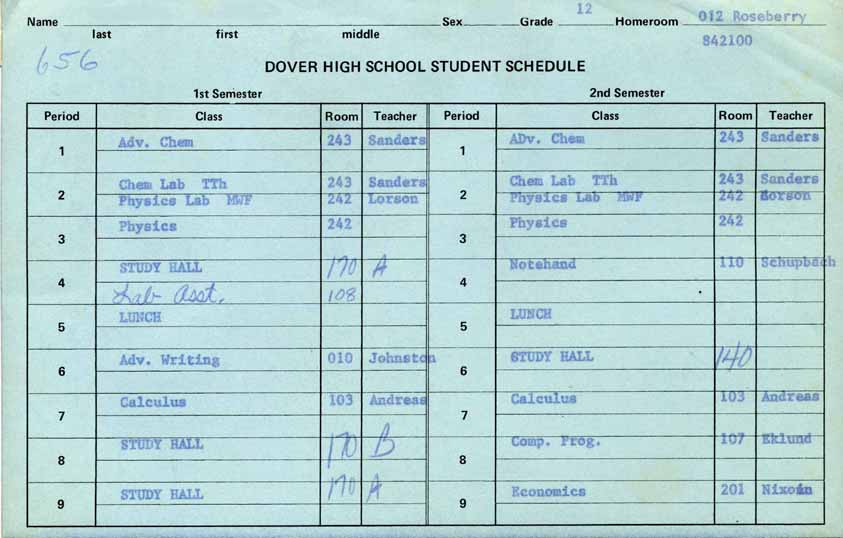 12
Name Sex Grade Homeroom 012 Roseberry
last first middle 842100
656
DOVER HIGH SCHOOL STUDENT SCHEDULE
1st Semester 2nd Semester
Period Class Room Teacher Period Class Room Teacher
1 Adv. Chem 243 Sanders 1 ADv. Chem 243 Sanders
2 Chem Lab TTh 243 Sanders 2 Chem Lab TTh 243 Sanders
Physics Lab MWF 242 Lorson Physics Lab MWF 242 Lorson
3 Physics 242 3 Physics 242
4 STUDY HALL 170 A 4 Notehand 110 Schupbach
Lab Asst. 108
5 LUNCH 5 LUNCH
6 Adv. Writing 010 Johnston 6 STUDY HALL 140
7 Calculus 103 Andreas 7 Calculus 103 Andreas
8 STUDY HALL 170 B 8 Comp. Prog. 107 Eklund
9 STUDY HALL 170 A 9 Economics 201